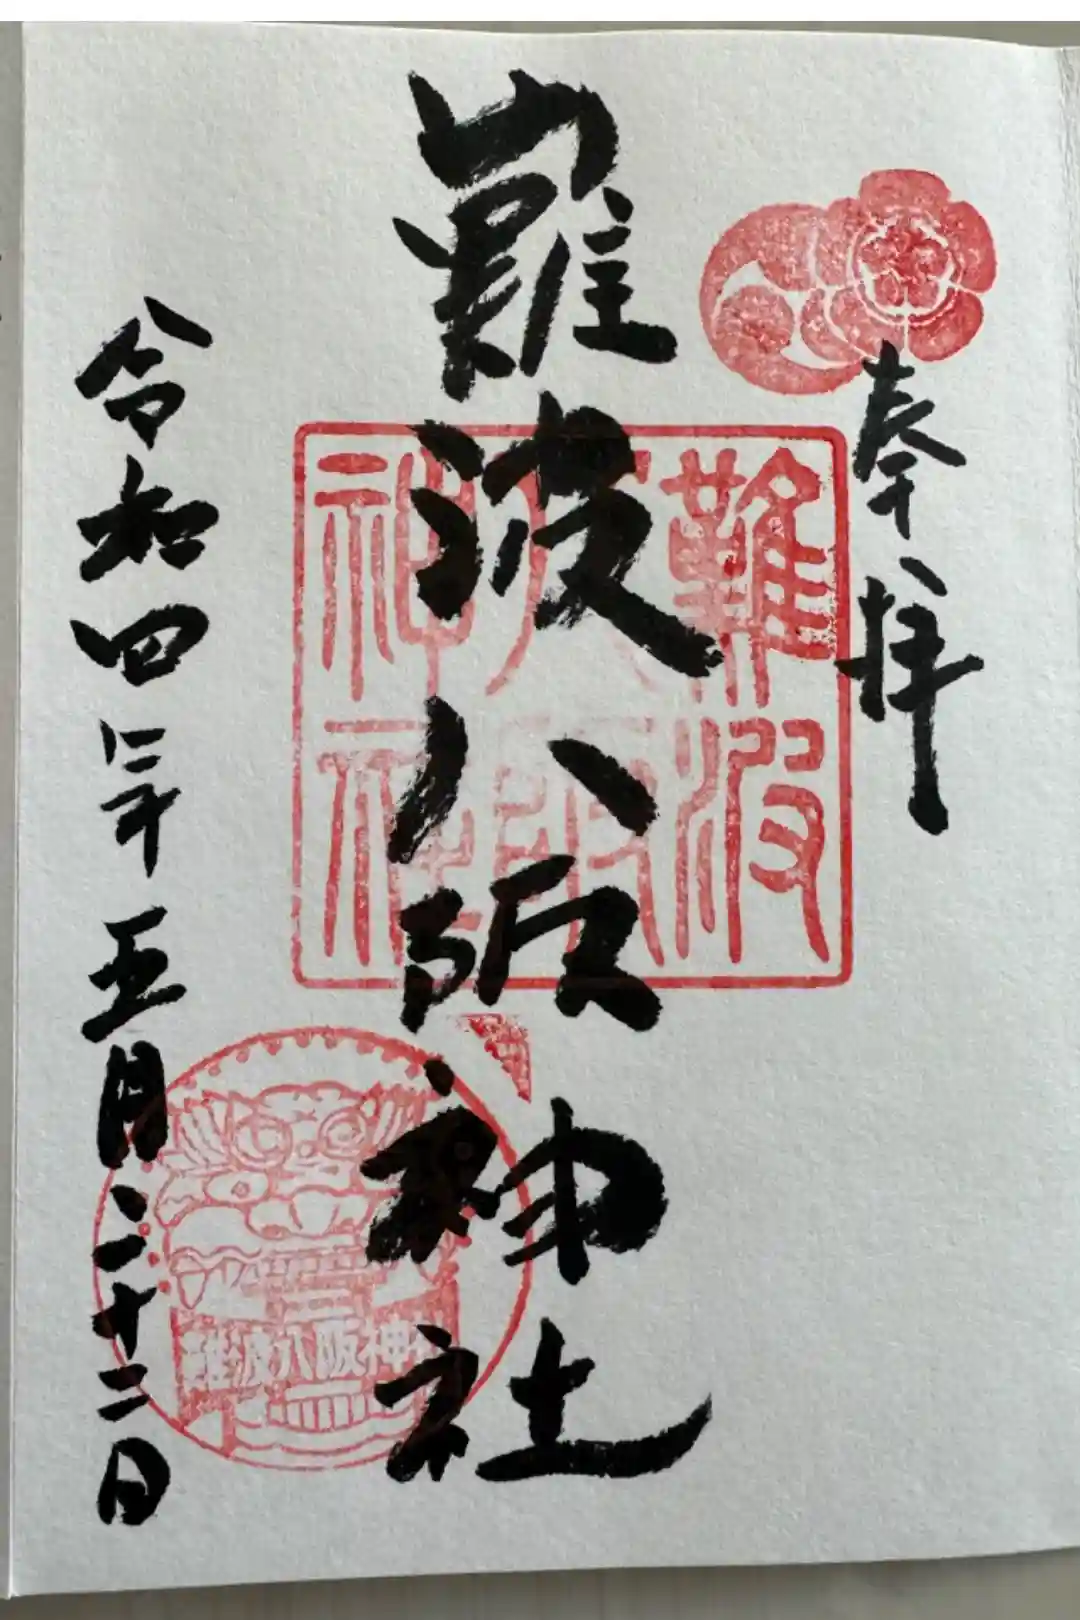 奉拝
難波八阪神社
令和四年五月二十二日
難波
八阪
神社
難波八阪神社